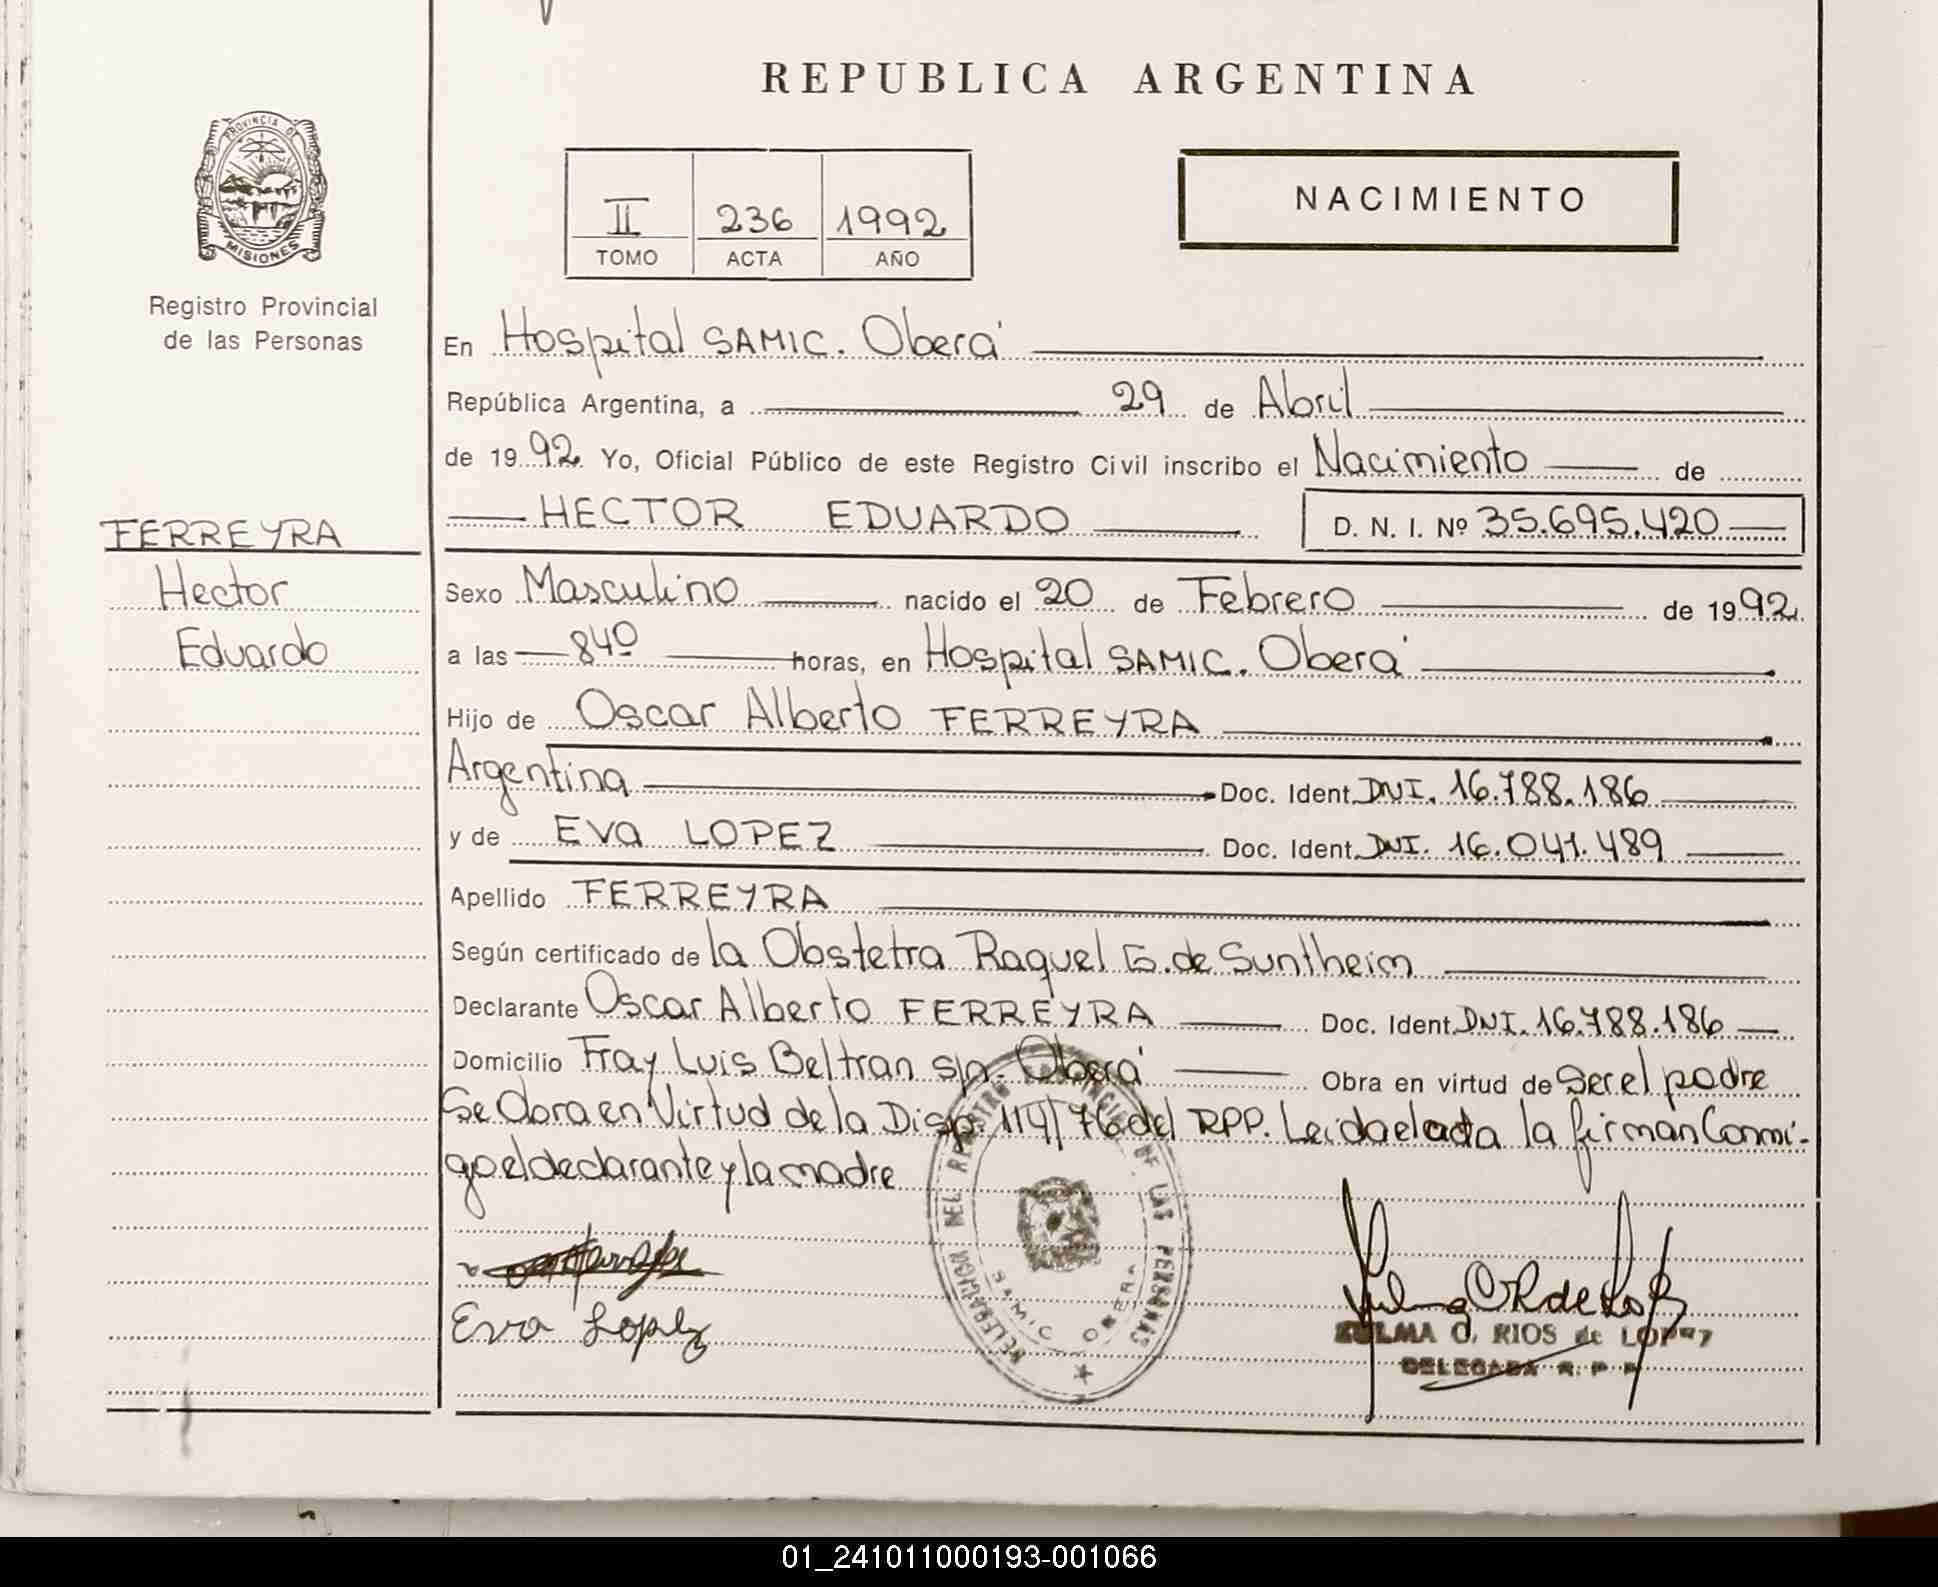 REPUBLICA ARGENTINA
PROVINCIA DE
MISIONES
Registro Provincial
de las Personas
II 236 1992
TOMO ACTA AÑO
NACIMIENTO
En Hospital SAMIC. Oberá
República Argentina, a 29 de Abril
de 1992 Yo, Oficial Público de este Registro Civil inscribo el Nacimiento de
HECTOR EDUARDO D. N. I. Nº 35.695.420
FERREYRA
Hector
Eduardo
Sexo Masculino nacido el 20 de Febrero de 1992
a las 840 horas, en Hospital SAMIC. Oberá
Hijo de Oscar Alberto FERREYRA
Argentina Doc. Ident. DNI. 16.788.186
y de EVA LOPEZ Doc. Ident. DNI. 16.041.489
Apellido FERREYRA
Según certificado de la Obstetra Raquel G. de Suntheim
Declarante Oscar Alberto FERREYRA Doc. Ident. DNI. 16.788.186
Domicilio Fray Luis Beltran s/n. Oberá Obra en virtud de Ser el padre
Se Obra en Virtud de la Disp. 114/76 del RPP. Leida el acta la firman Conmi-
go el declarante y la madre
DELEGACION DEL REGISTRO PROVINCIAL DE LAS PERSONAS
SAMIC OBERA
Eva Lopez
ZULMA O. RIOS de LOPEZ
DELEGADA R. P. P.
01_241011000193-001066